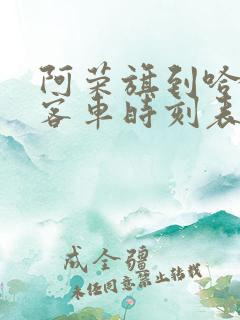 阿荣旗到哈
客车时刻表
成全疆
未经同意禁止转载